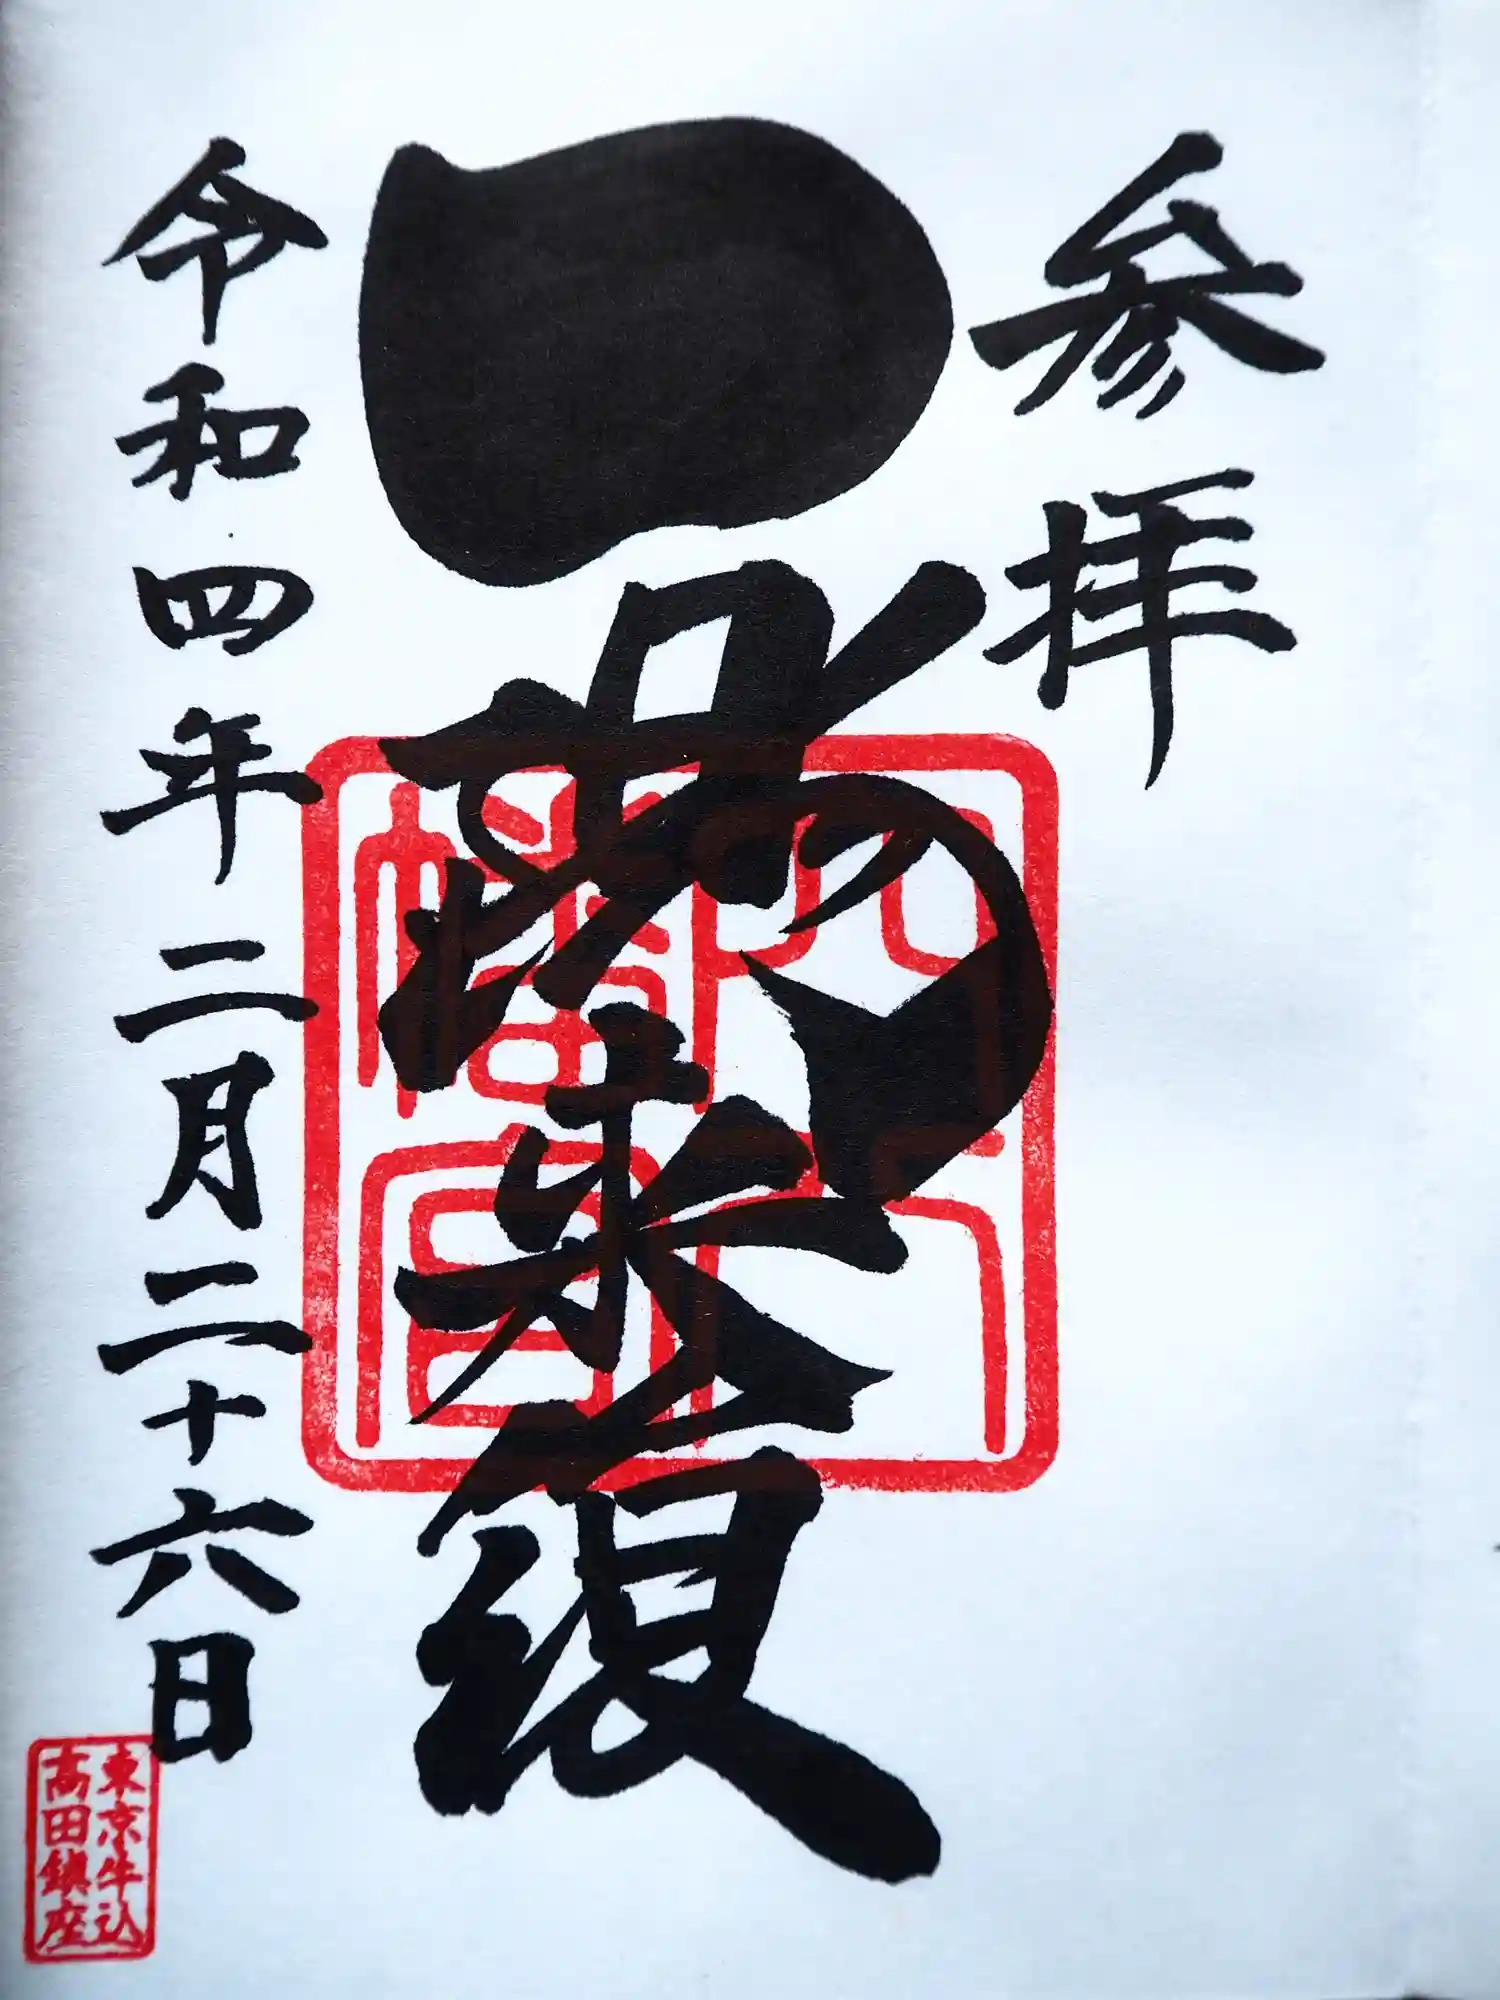 参拝
一陽来復
穴八
幡宮
令和四年二月二十六日
東京牛込
高田鎮座